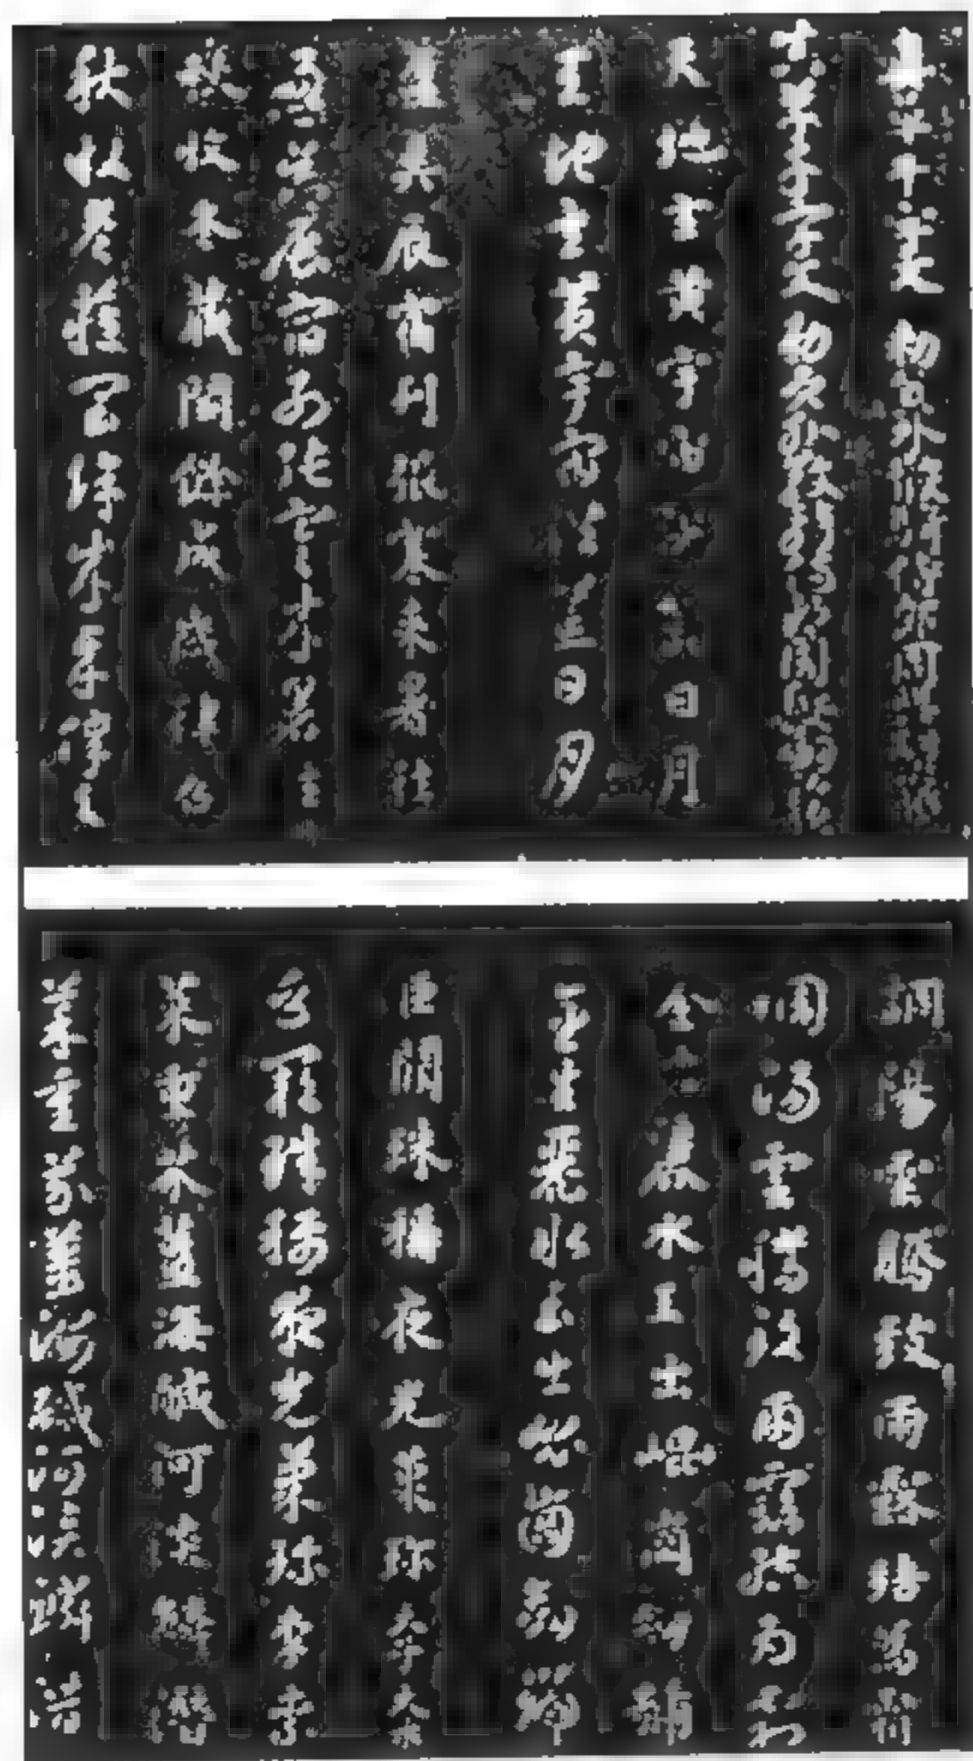 真草千字文敕員外散騎侍郎周興嗣次韻
真草千字文敕員外散騎侍郎周興嗣次韻
天地玄黃宇宙洪荒日月
天地玄黃宇宙洪荒日月
盈昃辰宿列張寒來暑往
盈昃辰宿列張寒來暑往
秋收冬藏閏餘成歲律呂
秋收冬藏閏餘成歲律呂
調陽雲騰致雨露結為霜
調陽雲騰致雨露結為霜
金生麗水玉出崑崗劍號
金生麗水玉出崑崗劍號
巨闕珠稱夜光果珍李柰
巨闕珠稱夜光果珍李柰
菜重芥薑海鹹河淡鱗潛
菜重芥薑海鹹河淡鱗潛